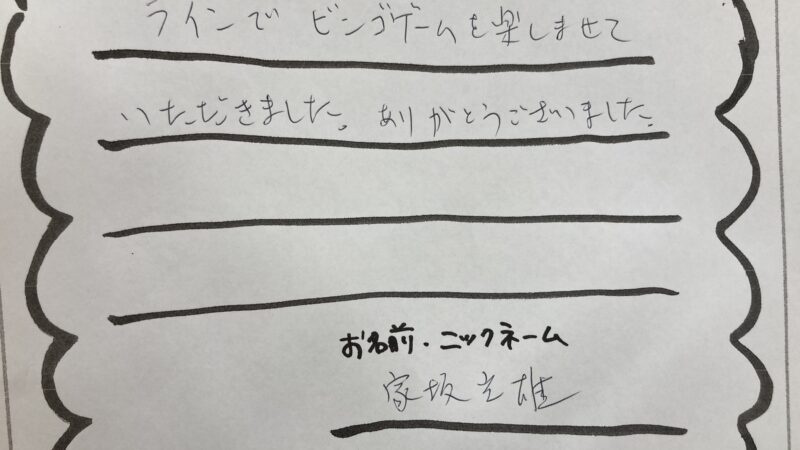 ラインで ビンゴゲームを楽しませて
いただきました。ありがとうございました。
お名前・ニックネーム
家坂立雄